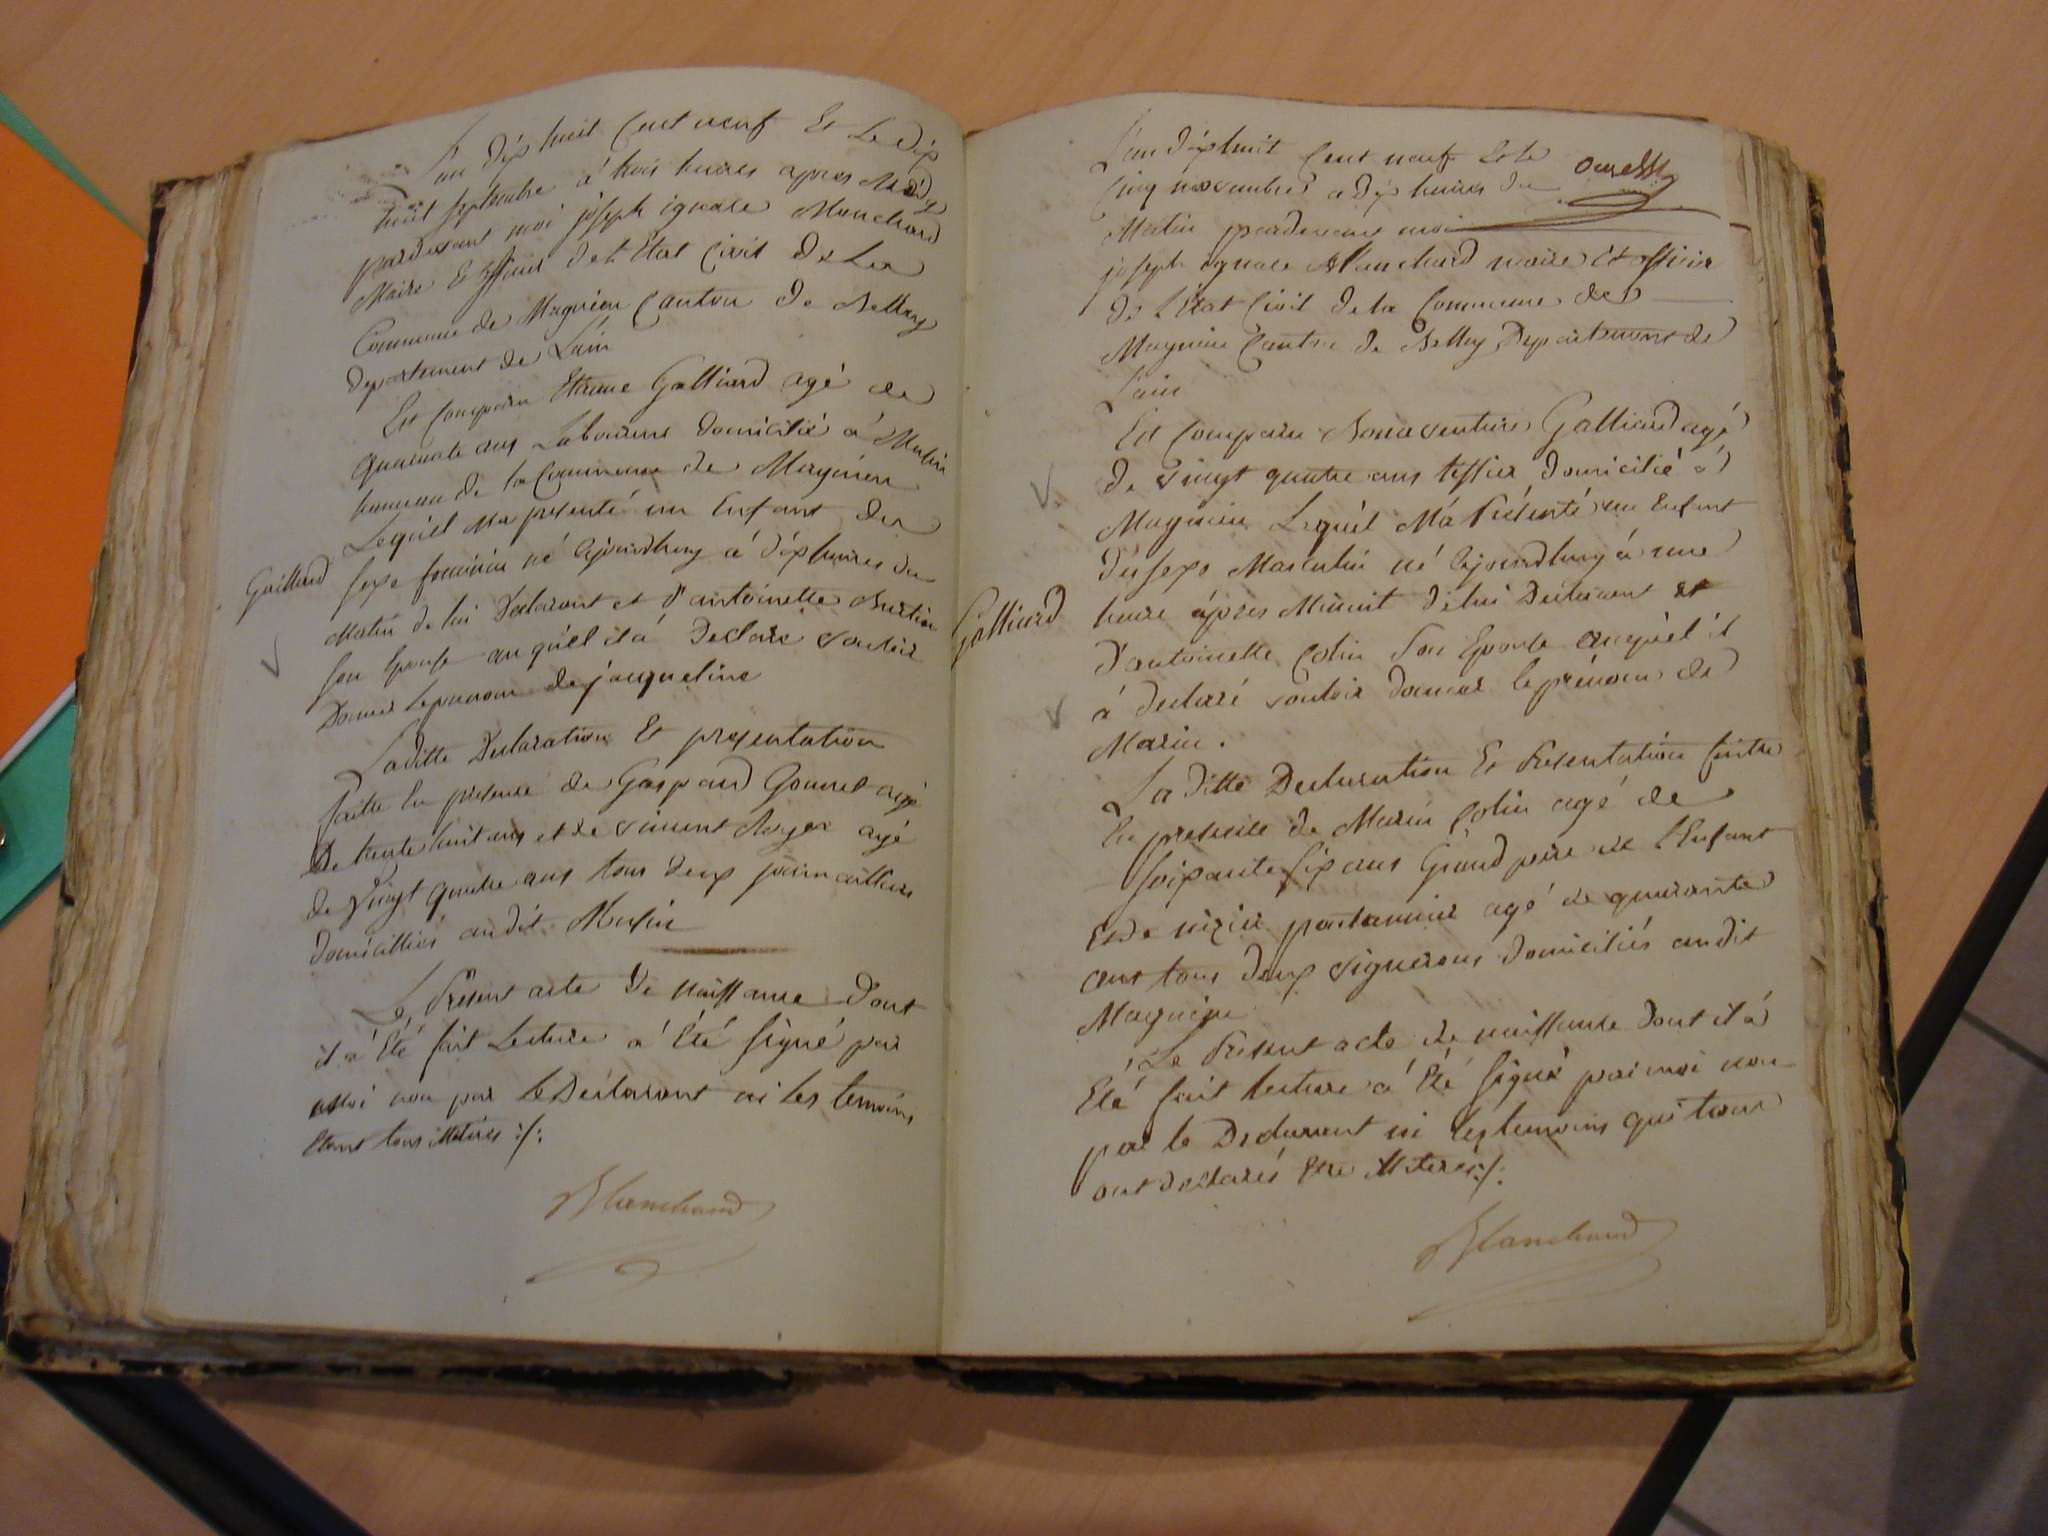 L'an dix huit Cent neuf Et Le dix
huit septembre à trois heures apres Midy
pardevant moi joseph ignace Blanchard
Maire Et officier de l'Etat Civil de La
Commune de Magnieu Canton de Belley
departement de L'ain
Est Comparu Etienne Galliard agé de
quarante ans Laboureur domicilié á Musin
hameau de la Commune de Magnieu
Lequel m'a presenté un Enfant du
Galliard
sexe feminin né ajourdhuy á dix heures du
Matin de lui Declarant et d'antoinette
son Epouse au quel il á Declaré vouloir
Donner le prenom de jacqueline
La ditte Declaration Et presentation
faitte En presence de Gaspard Gounet agé
De trente huit ans et de vincent Roger agé
de vingt quatre ans tous deux journailliers
domicilliés audit Musin
Le Présent acte De naissance Dont
il a Eté fait Lecture á Eté signé par
moi non par Le Declarant ni les temoins
Etant tous illiterés ./.
Blanchard
L'an dix huit Cent neuf Et le
Cinq novembre a dix heures du
Matin pardevant moi
joseph ignace Blanchard maire Et officier
de l'Etat Civil de la Commune de
Magnieu Canton de Belley Departement de
L'ain
Est Comparu Bonaventure Galliard agé
de vingt quatre ans tissier domicilié á
Magnieu Lequel M'á Présenté un Enfant
du sexe Masculin né ajourdhuy á une
Galliard
heure áprès Minuit de lui Declarant et
d'antoinette Colin son Epouse auquel il
á declaré vouloir donner le prénom de
Marin.
La ditte Declaration Et Presentation faitte
En presence de Marin Colin agé de
soixante six ans Grand pere de l'Enfant
Et de nizier pontannier agé de quarante
ans tous deux vignerons domiciliés audit
Magnieu
Le Present acte de naissance Dont il á
Eté fait lecture á Eté signé par moi non
par le Declarant ni les temoins qui tous
ont declarés Etre illiterés ./.
Blanchard